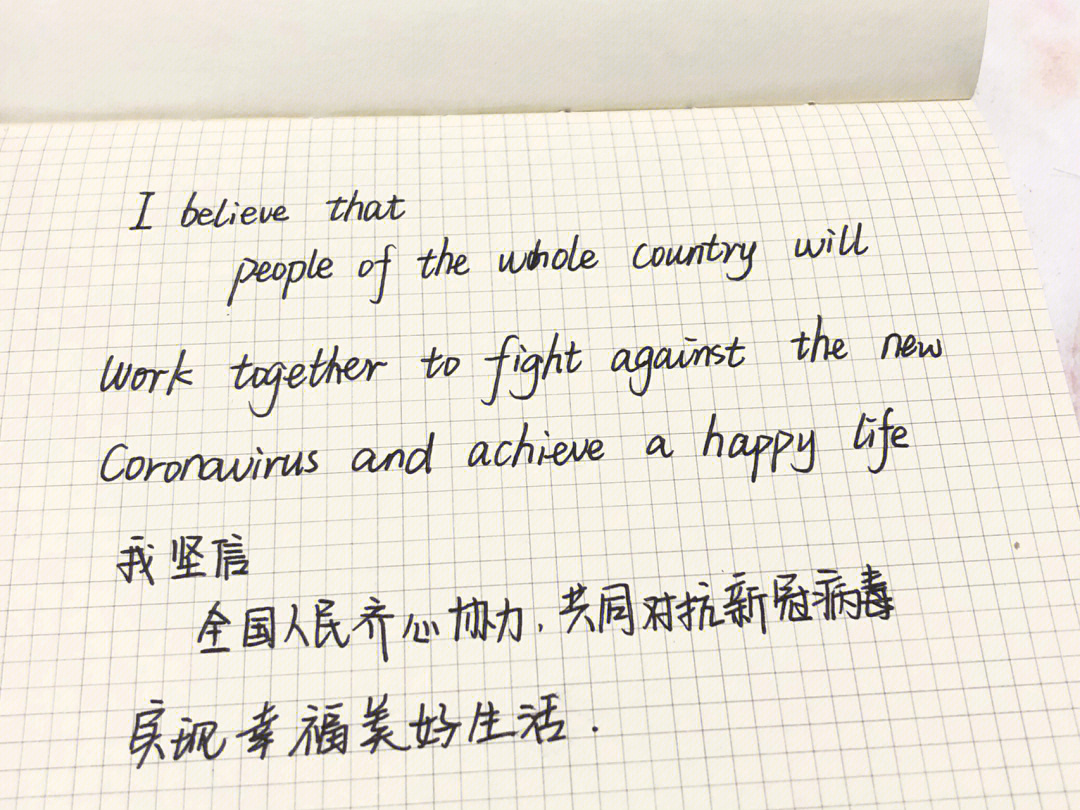 I believe that
people of the whole country will
work together to fight against the new
Coronavirus and achieve a happy life
我坚信
全国人民齐心协力,共同对抗新冠病毒
实现幸福美好生活.